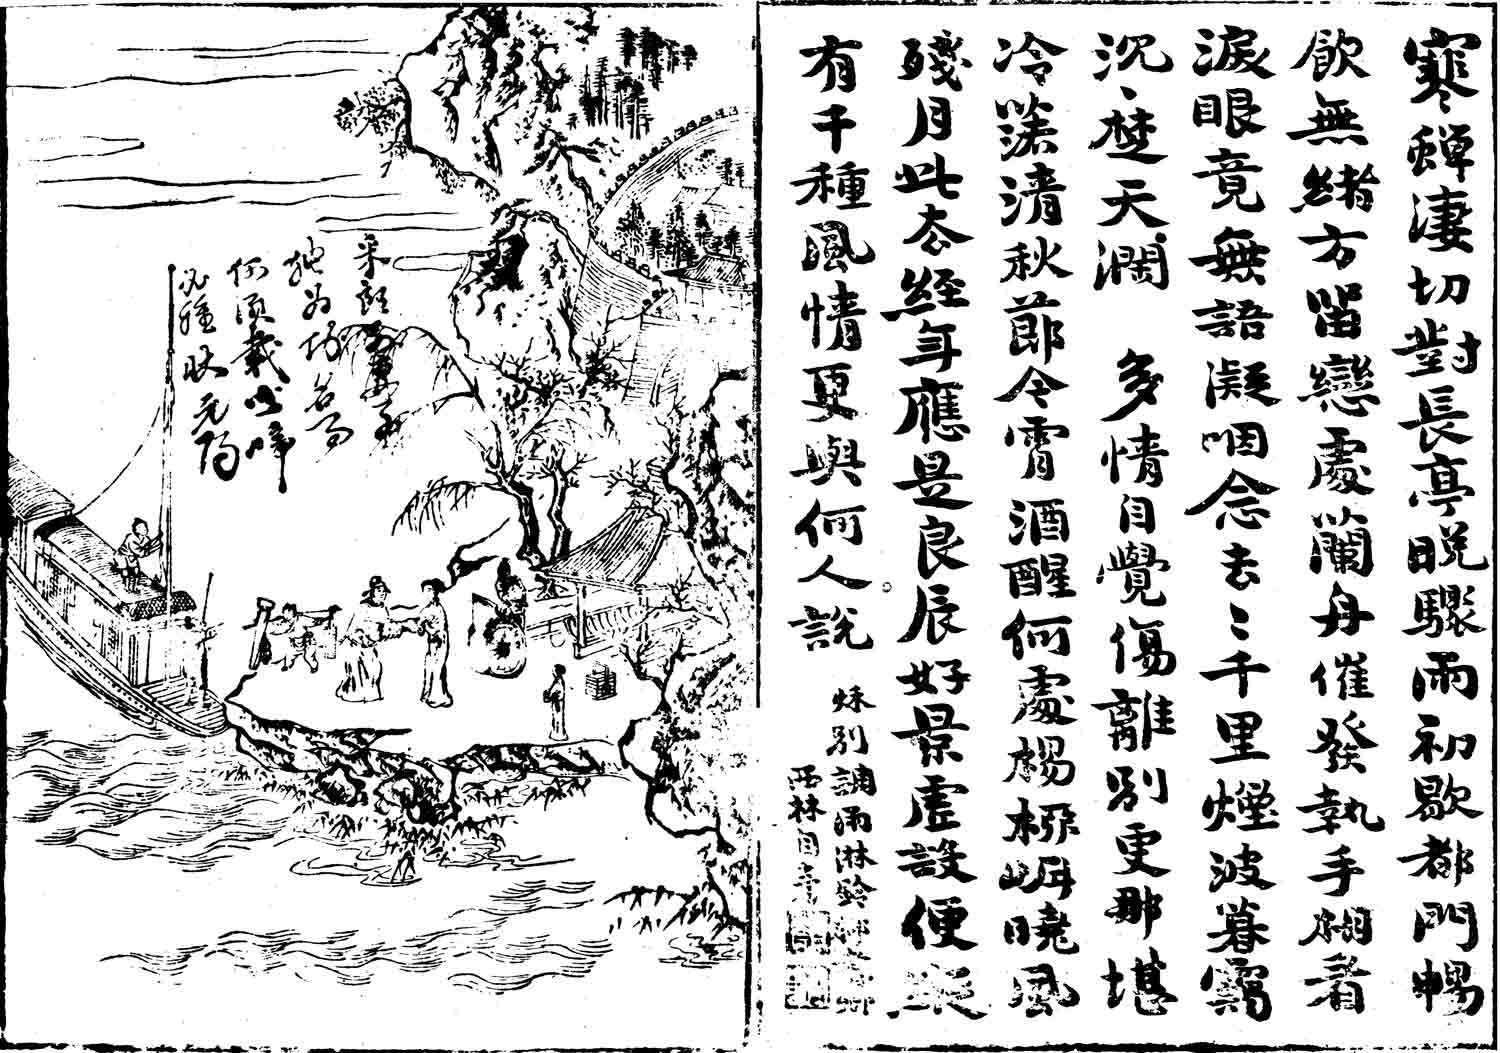 寒蟬淒切對長亭晚驟雨初歇都門暢
飲無緒方留戀處蘭舟催發執手相看
淚眼竟無語凝咽念去〻千里煙波暮靄
沉〻楚天濶 多情自覺傷離別更那堪
冷落清秋節今宵酒醒何處楊柳岸曉風
殘月此去經年應是良辰好景虛設便縱
有千種風情更與何人說
秋別調雨淋鈴
西林